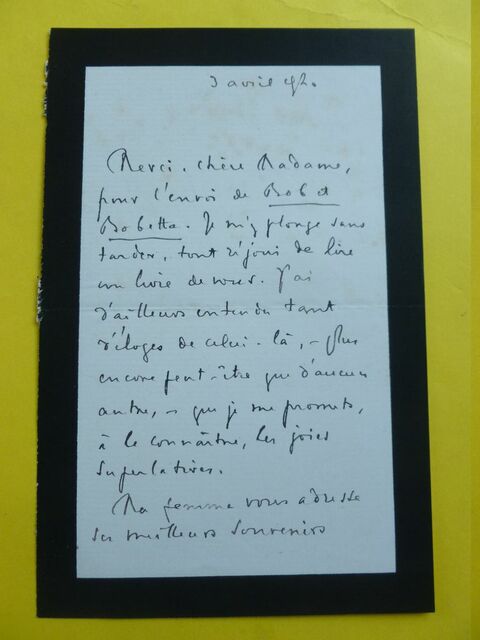 3 avril 92.
Merci, chère Madame,
pour l'envoi de Bob et
Bobette. Je m'y plonge sans
tarder, tout réjoui de lire
un livre de vous. J'ai
d'ailleurs entendu tant
d'éloges de celui-là, – plus
encore peut-être que d'aucun
autre, – que je me promets,
à le connaître, les joies
superlatives.
Ma femme vous adresse
ses meilleurs souvenirs